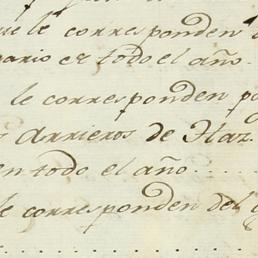 le corresponden
pario es todo el año.
le corresponden po
Arrieros de Haz.
en todo el año
le corresponden del